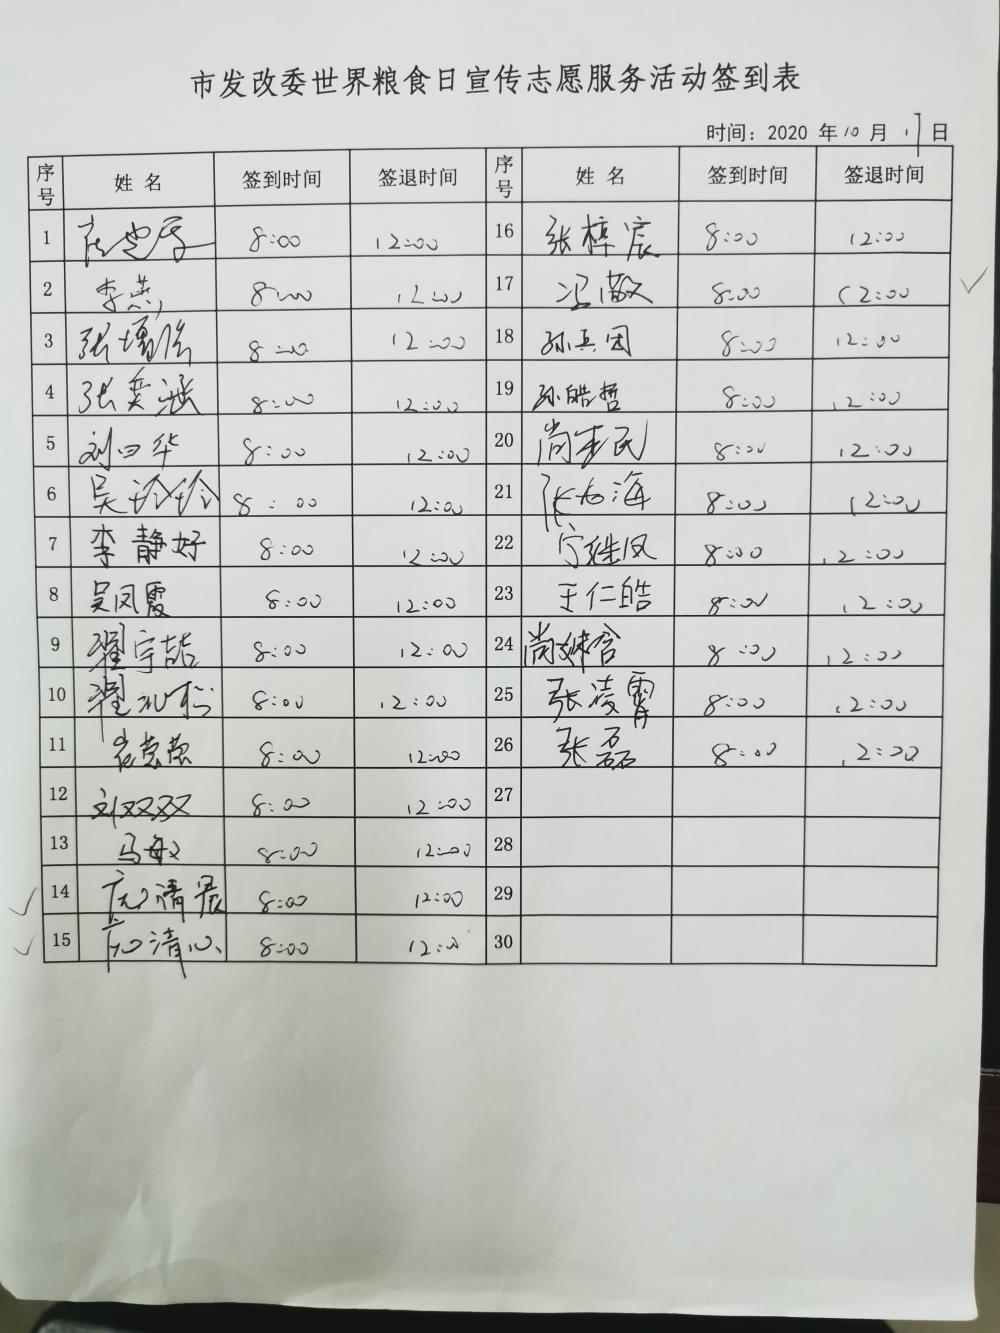 市发改委世界粮食日宣传志愿服务活动签到表
时间：2020 年 10 月 17 日
序号 姓 名 签到时间 签退时间 序号 姓 名 签到时间 签退时间
1 8:00 12:00 16 张梓宸 8:00 12:00
2 李燕 8:00 12:00 17 冯敬 8:00 12:00
3 张 8:00 12:00 18 孙兵团 8:00 12:00
4 张奕涵 8:00 12:00 19 孙皓哲 8:00 12:00
5 刘 华 8:00 12:00 20 尚 民 8:00 12:00
6 吴玲玲 8:00 12:00 21 张 海 8:00 12:00
7 李静好 8:00 12:00 22 宁继凤 8:00 12:00
8 吴凤霞 8:00 12:00 23 王仁皓 8:00 12:00
9 翟宇喆 8:00 12:00 24 尚姝含 8:00 12:00
10 翟 8:00 12:00 25 张凌霄 8:00 12:00
11 8:00 12:00 26 张磊 8:00 12:00
12 刘双双 8:00 12:00 27
13 马敏 8:00 12:00 28
14 清晨 8:00 12:00 29
15 清心 8:00 12:00 30